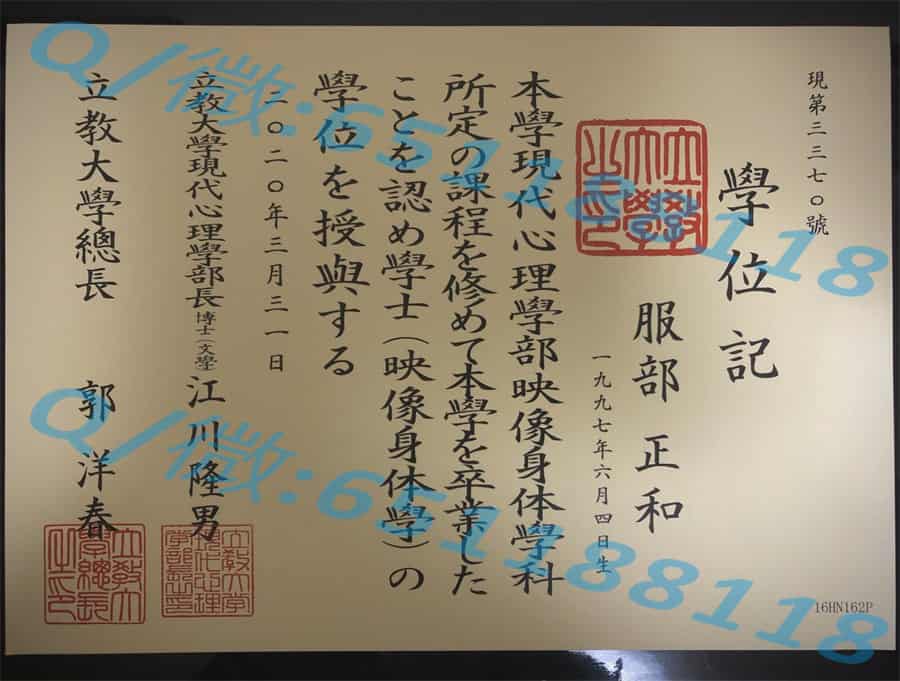 現第三三七〇號
學位記
服部 正和
一九九七年六月四日生
本學現代心理學部映像身体學科
所定の課程を修めて本學を卒業した
ことを認め學士(映像身体學)の
學位を授與する
二〇二〇年三月三一日
立教大學現代心理學部長 博士(文學) 江川隆男
立教大學總長 郭洋春
立教大學之印
立教大學現代心理學部長之印
立教大學總長之印
16HN162P
Q/微:651188118
Q/微:651188118